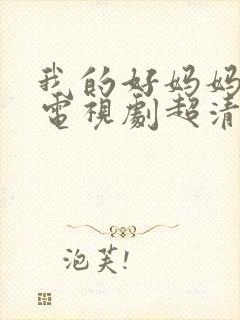 我的好妈妈
電視劇超清
泡芙!